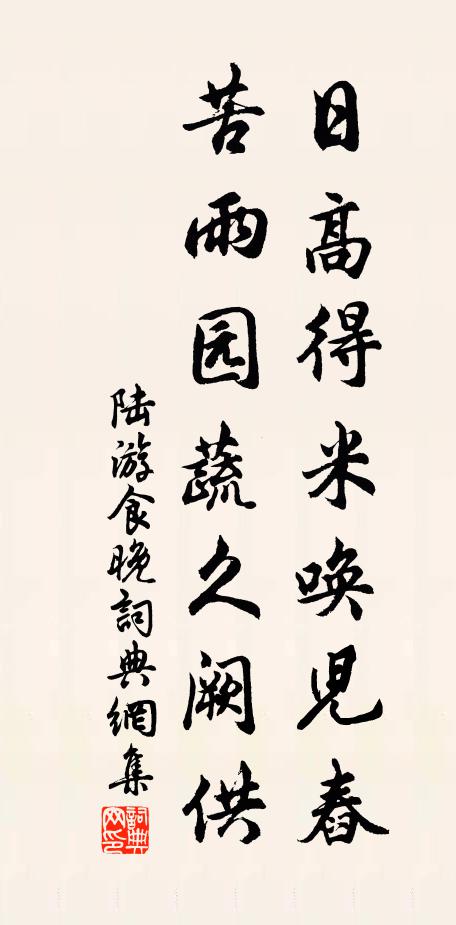 日高得米唤児舂
苦雨园蔬久阙供
陆游食晚詞典網集
詞典网印